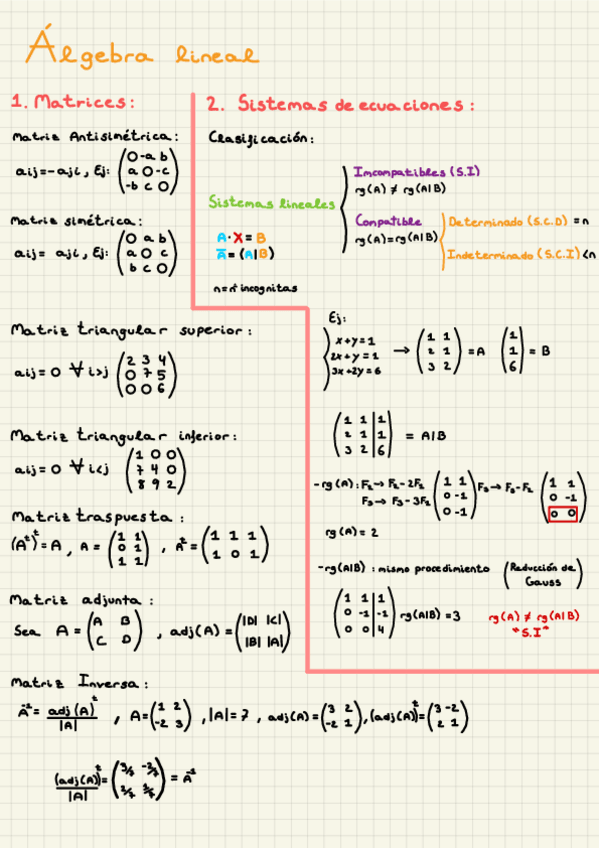 Álgebra lineal
1. Matrices:
Matriz Antisimétrica:
aij=-aji, Ej: (0 -a b
a 0 -c
-b c 0)
Matriz simétrica:
aij= aji, Ej: (0 a b
a 0 c
b c 0)
Matriz triangular superior:
aij=0 ∀ i>j (2 3 4
0 7 5
0 0 6)
Matriz triangular inferior:
aij=0 ∀ i<j (1 0 0
7 4 0
8 9 2)
Matriz traspuesta:
(Aᵗ)ᵗ=A, A=(1 1
0 1
1 1), Aᵗ=(1 1 1
1 0 1)
Matriz adjunta:
Sea A=(A B
C D), adj(A)=(|D| |C|
|B| |A|)
Matriz Inversa:
A⁻¹= adj(A)ᵗ/|A|, A=(1 2
-2 3), |A|=7, adj(A)=(3 2
-2 1), (adj(A))ᵗ=(3 -2
2 1)
(adj(A))ᵗ/|A|=(3/7 -2/7
2/7 1/7)=A⁻¹
2. Sistemas de ecuaciones:
Clasificación:
Sistemas lineales
A·X=B
A̅=(A|B)
n=nº incognitas
Imcompatibles (S.I)
rg(A) ≠ rg(A|B)
Compatible
rg(A)=rg(A|B)
Determinado (S.C.D) =n
Indeterminado (S.C.I) <n
Ej:
x+y=1
2x+y=1
3x+2y=6
→ (1 1
2 1
3 2) =A (1
1
6) = B
(1 1 | 1
2 1 | 1
3 2 | 6) = A|B
-rg(A): F₂→F₂-2F₁
F₃→F₃-3F₁
(1 1
0 -1
0 -1) F₃→F₃-F₂ (1 1
0 -1
0 0)
rg(A)=2
-rg(A|B): mismo procedimiento (Reducción de
Gauss)
(1 1 | 1
0 -1 | -1
0 0 | 4) rg(A|B)=3
rg(A) ≠ rg(A|B)
"S.I"